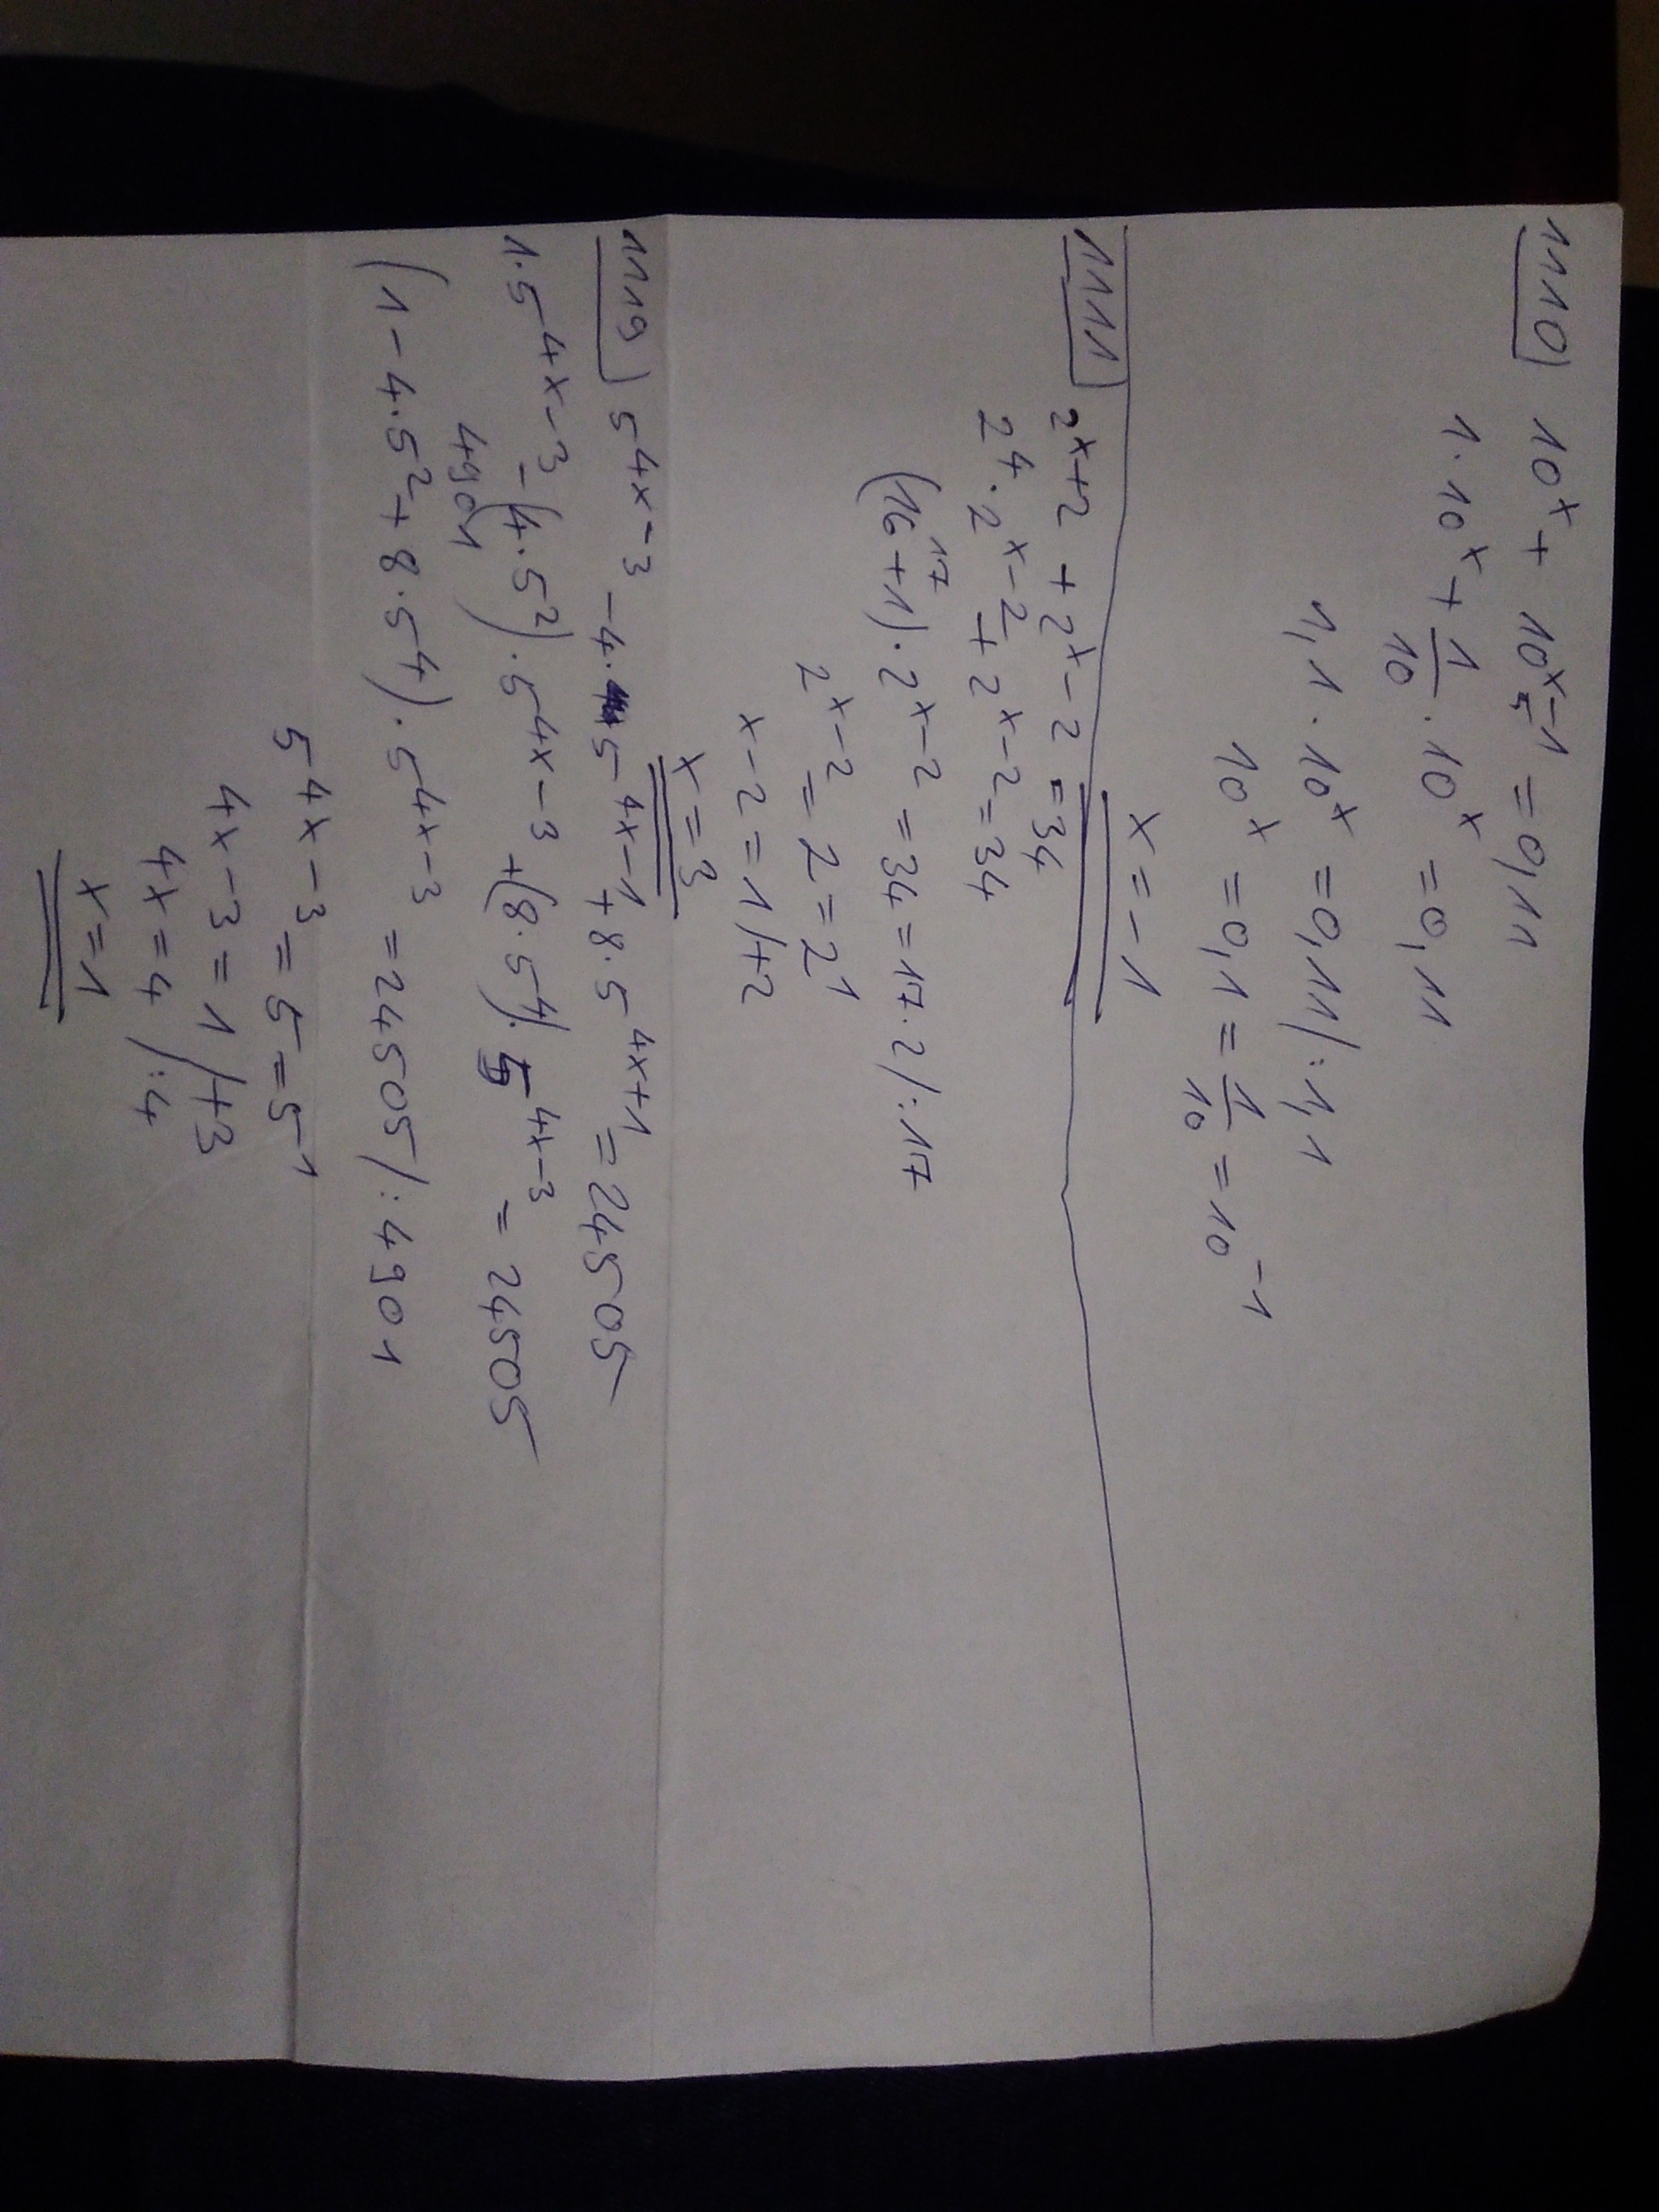 1110) 10^x + 10^(x-1) = 0,11
1·10^x + 1/10 · 10^x = 0,11
1,1 · 10^x = 0,11 /:1,1
10^x = 0,1 = 1/10 = 10^-1
x = -1
1111) 2^(x+2) + 2^(x-2) = 34
2^4 · 2^(x-2) + 2^(x-2) = 34
17
(16+1) · 2^(x-2) = 34 = 17·2 /:17
2^(x-2) = 2 = 2^1
x-2 = 1 /+2
x = 3
1119) 5^(4x-3) - 4·5^(4x-1) + 8·5^(4x+1) = 24505
1·5^(4x-3) - (4·5^2)·5^(4x-3) + (8·5^4)·5^(4x-3) = 24505
4901
(1 - 4·5^2 + 8·5^4) · 5^(4x-3) = 24505 /:4901
5^(4x-3) = 5 = 5^1
4x-3 = 1 /+3
4x = 4 /:4
x = 1